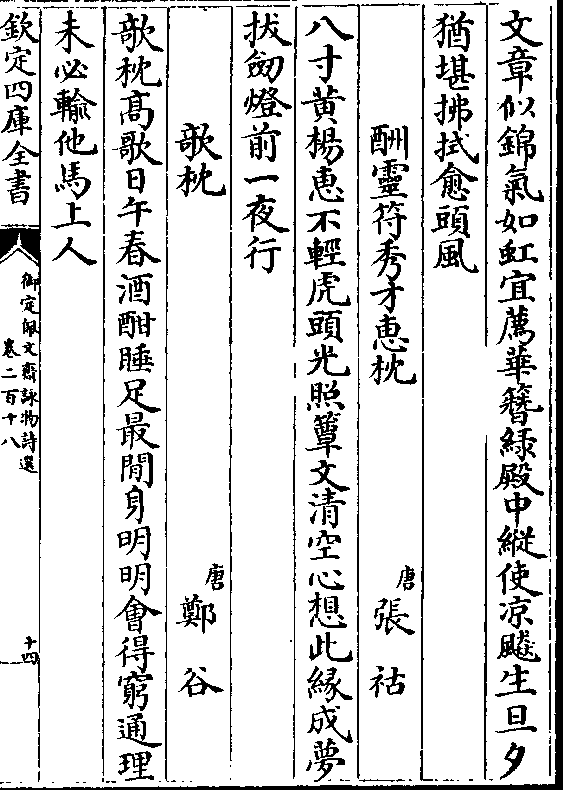 文章似錦氣如虹宜薦華簪緑殿中縱使凉飈生旦夕
猶堪拂拭愈頭風
酬靈符秀才惠枕
唐張祜
八寸黄楊惠不輕虎頭光照簟文清空心想此緣成夢
拔劒燈前一夜行
欹枕
唐鄭谷
欹枕高歌日午春酒酣睡足最閒身明明會得窮通理
未必輸他馬上人
欽定四庫全書
御定佩文齋詠物詩選
卷二百十八
十四